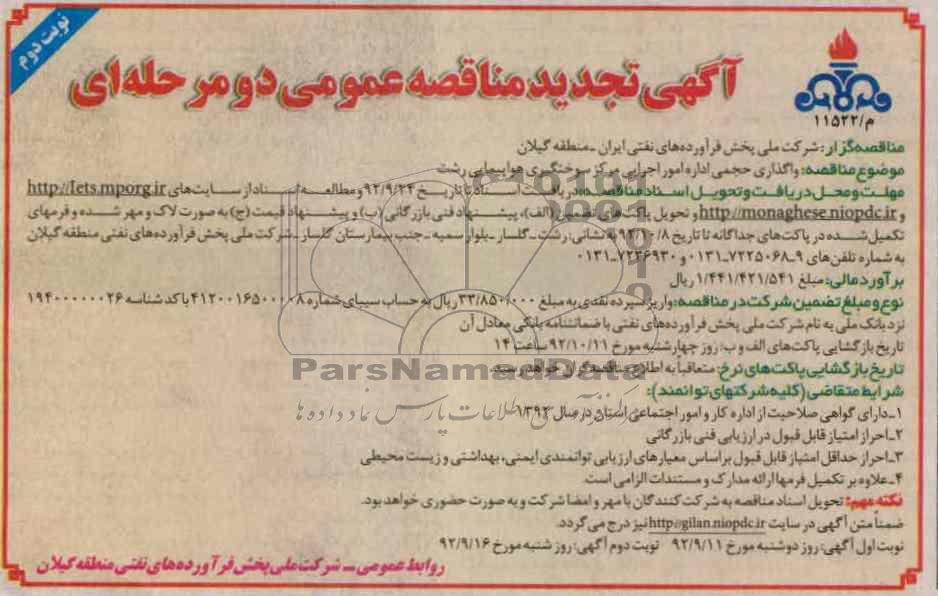 نوبت دوم
آگهی تجدید مناقصه عمومی دو مرحله‌ای
م/۱۱۵۲۲
مناقصه‌گزار: شرکت ملی پخش فرآورده‌های نفتی ایران ـ منطقه گیلان
موضوع مناقصه: واگذاری حجمی اداره امور اجرایی مرکز سوختگیری هواپیمایی رشت
مهلت و محل دریافت و تحویل اسناد مناقصه: دریافت اسناد تا تاریخ ۹۲/۹/۲۴ و مطالعه اسناد از سایت‌های http://Iets.mporg.ir
و http://monaghese.niopdc.ir و تحویل پاکت‌های تضمین (الف)، پیشنهاد فنی بازرگانی (ب) و پیشنهاد قیمت (ج) به صورت لاک و مهر شده و فرمهای
تکمیل شده در پاکت‌های جداگانه تا تاریخ ۹۲/۱۰/۸ به نشانی: رشت ـ گلسار ـ بلوار سمیه ـ جنب بیمارستان گلسار ـ شرکت ملی پخش فرآورده‌های نفتی منطقه گیلان
به شماره تلفن‌های ۹ـ۷۲۲۵۰۶۸ـ۰۱۳۱ و ۷۲۳۶۹۳۰ـ۰۱۳۱
برآورد مالی: مبلغ ۱/۴۴۱/۴۲۱/۵۴۱ ریال
نوع و مبلغ تضمین شرکت در مناقصه: واریز سپرده نقدی به مبلغ ۳۳/۸۵۰/۰۰۰ ریال به حساب سیبای شماره ۴۱۲۰۰۱۶۵۰۰۰۰۸ با کد شناسه ۱۹۴۰۰۰۰۰۰۰۲۶
نزد بانک ملی به نام شرکت ملی پخش فرآورده‌های نفتی با ضمانتنامه بانکی معادل آن
تاریخ بازگشایی پاکت‌های الف و ب: روز چهارشنبه مورخ ۹۲/۱۰/۱۱ ساعت ۱۴
تاریخ بازگشایی پاکت‌های نرخ: متعاقباً به اطلاع مناقصه‌گران خواهد رسید.
شرایط متقاضی (کلیه شرکتهای توانمند):
۱ـ دارای گواهی صلاحیت از اداره کار و امور اجتماعی استان در سال ۱۳۹۲
۲ـ احراز امتیاز قابل قبول در ارزیابی فنی بازرگانی
۳ـ احراز حداقل امتیاز قابل قبول براساس معیارهای ارزیابی توانمندی ایمنی، بهداشتی و زیست محیطی
۴ـ علاوه بر تکمیل فرمها ارائه مدارک و مستندات الزامی است.
نکته مهم: تحویل اسناد مناقصه به شرکت کنندگان با مهر و امضا شرکت و به صورت حضوری خواهد بود.
ضمناً متن آگهی در سایت http://gilan.niopdc.ir نیز درج می‌گردد.
نوبت اول آگهی: روز دوشنبه مورخ ۹۲/۹/۱۱ نوبت دوم آگهی: روز شنبه مورخ ۹۲/۹/۱۶
روابط عمومی ـ شرکت ملی پخش فرآورده‌های نفتی منطقه گیلان
ParsNamadData